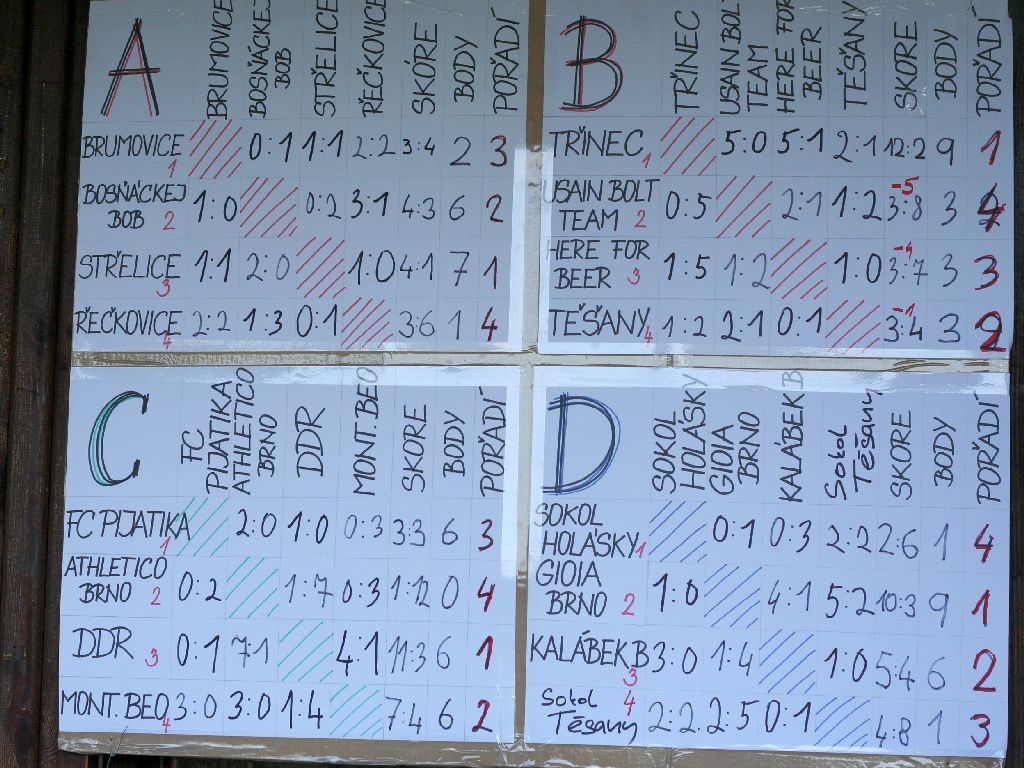 A BRUMOVICE BOSŇÁCKEJ BOB STŘELICE ŘEČKOVICE SKÓRE BODY POŘADÍ
BRUMOVICE 1 0:1 1:1 2:2 3:4 2 3
BOSŇÁCKEJ BOB 2 1:0 0:2 3:1 4:3 6 2
STŘELICE 3 1:1 2:0 1:0 4:1 7 1
ŘEČKOVICE 4 2:2 1:3 0:1 3:6 1 4
B TŘINEC USAIN BOLT TEAM HERE FOR BEER TĚŠANY SKORE BODY POŘADÍ
TŘINEC 1 5:0 5:1 2:1 12:2 9 1
USAIN BOLT TEAM 2 0:5 2:1 1:2 -5 3:8 3
HERE FOR BEER 3 1:5 1:2 1:0 -4 3:7 3 3
TĚŠANY 4 1:2 2:1 0:1 -1 3:4 3 2
C FC PIJATIKA ATHLETICO BRNO DDR MONT. BEO SKORE BODY POŘADÍ
FC PIJATIKA 1 2:0 1:0 0:3 3:3 6 3
ATHLETICO BRNO 2 0:2 1:7 0:3 1:12 0 4
DDR 3 0:1 7:1 4:1 11:3 6 1
MONT. BEO 4 3:0 3:0 1:4 7:4 6 2
D SOKOL HOLÁSKY GIOIA BRNO KALÁBEK B Sokol Těšany SKORE BODY POŘADÍ
SOKOL HOLÁSKY 1 0:1 0:3 2:2 2:6 1 4
GIOIA BRNO 2 1:0 4:1 5:2 10:3 9 1
KALÁBEK B 3 3:0 1:4 1:0 5:4 6 2
Sokol Těšany 4 2:2 2:5 0:1 4:8 1 3